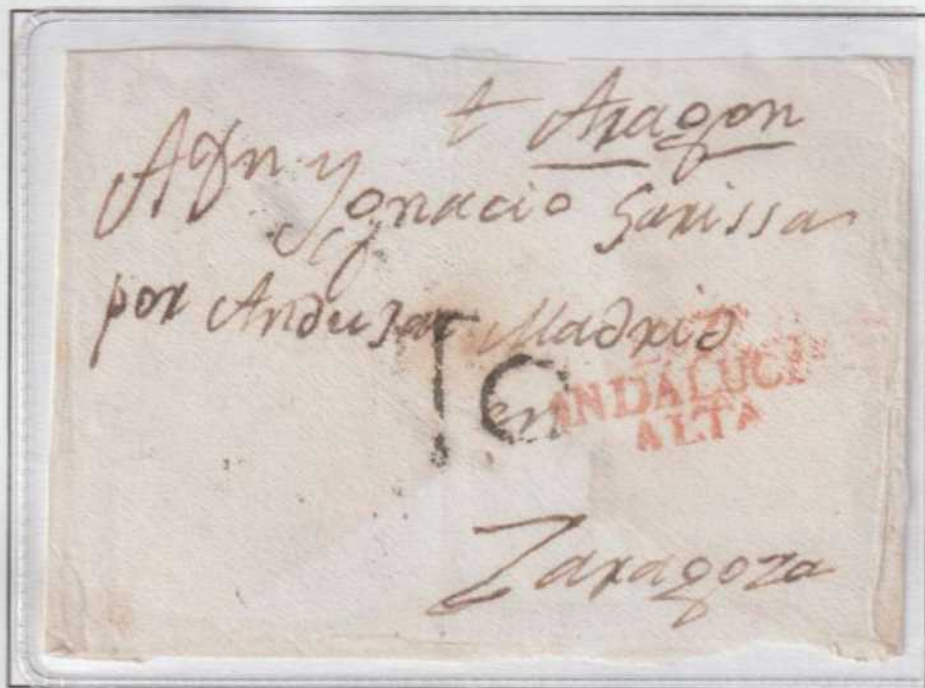 t Aragon
A Dn y
Ygnacio Garissa
por Andujar Madrid
10
en
ANDALUCI
ALTA
Zaragoza